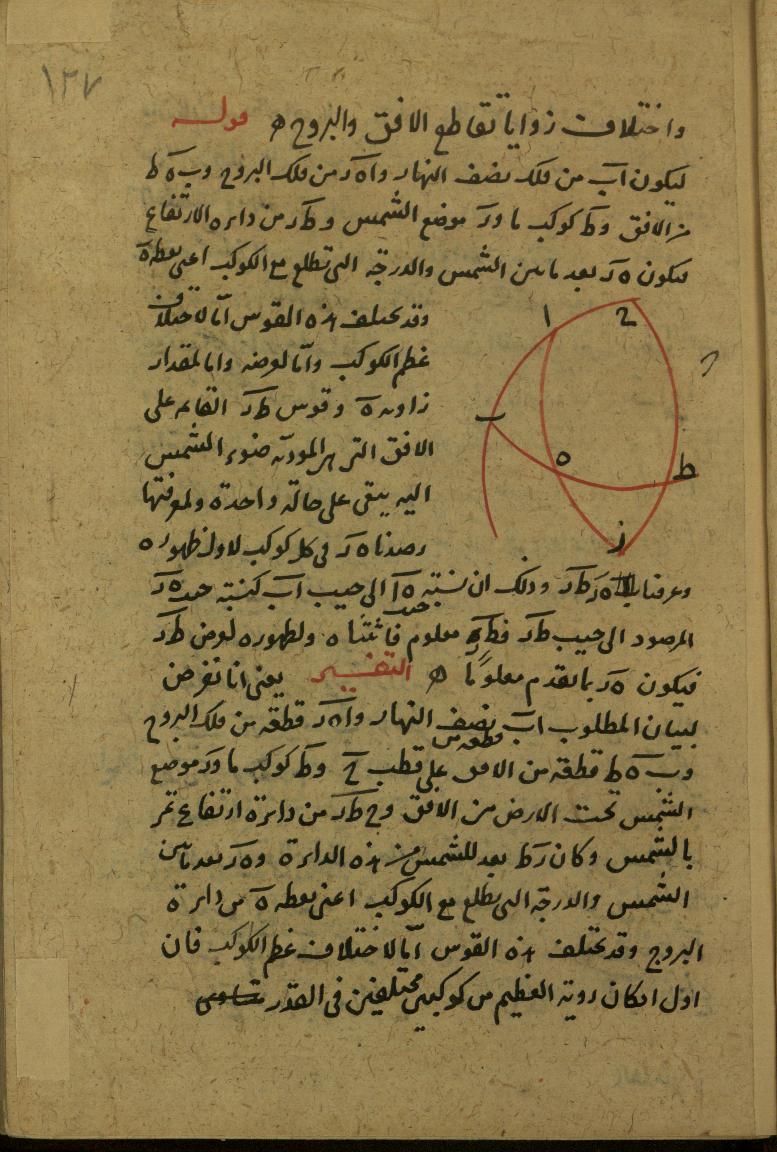 ١٢٧
واختلاف زوايا تقاطع الافق والبروج ه قوله
ليكون اب من فلك نصف النهار واه ر من فلك البروج وب ه ط
من الافق وط كوكب ما ور موضع الشمس وط ر من دايرة الارتفاع
ليكون ه ر بعد ما بين الشمس والدرجة التي تطلع مع الكوكب اعنى نقطة ه
وقد تختلف هذه القوس اما لاختلاف
عظم الكوكب واما لعرضه واما لمقدار
زاوية ه وقوس ط ر القائمة على
الافق التي هي المودية ضوء الشمس
اليه يبقى على حالة واحدة ولمعرفتها
رصدنا ه ر فى كل كوكب لاول ظهوره
وعرفنا ه ر ط ر وذلك ان نسبة جيب ه ا الى جيب اب كنسبة جيب ه ر
المرصود الى جيب ط ر فط ر معلوم فاثبتناه ولظهوره نفرض ط ر
فيكون ه ر بما تقدم معلومًا ه التفسير يعنى انا نفرض
لبيان المطلوب اب نصف النهار واه ر قطعة من فلك البروج
وب ه ط قطعة من الافق على قطب ح وط كوكب ما ور موضع
الشمس تحت الارض من الافق وح ط ر من دائرة ارتفاع تمر
بالشمس وكان ر ط بعد للشمس من هذه الدائرة وه ر بعد ما بين
الشمس والدرجة التي تطلع مع الكوكب اعنى نقطة ه من دائرة
البروج وقد تختلف هذه القوس اما لاختلاف عظم الكوكب فان
اول امكان روية العظيم من كوكبين مختلفين فى القدر
ا
ح
ب
ه
ط
ر